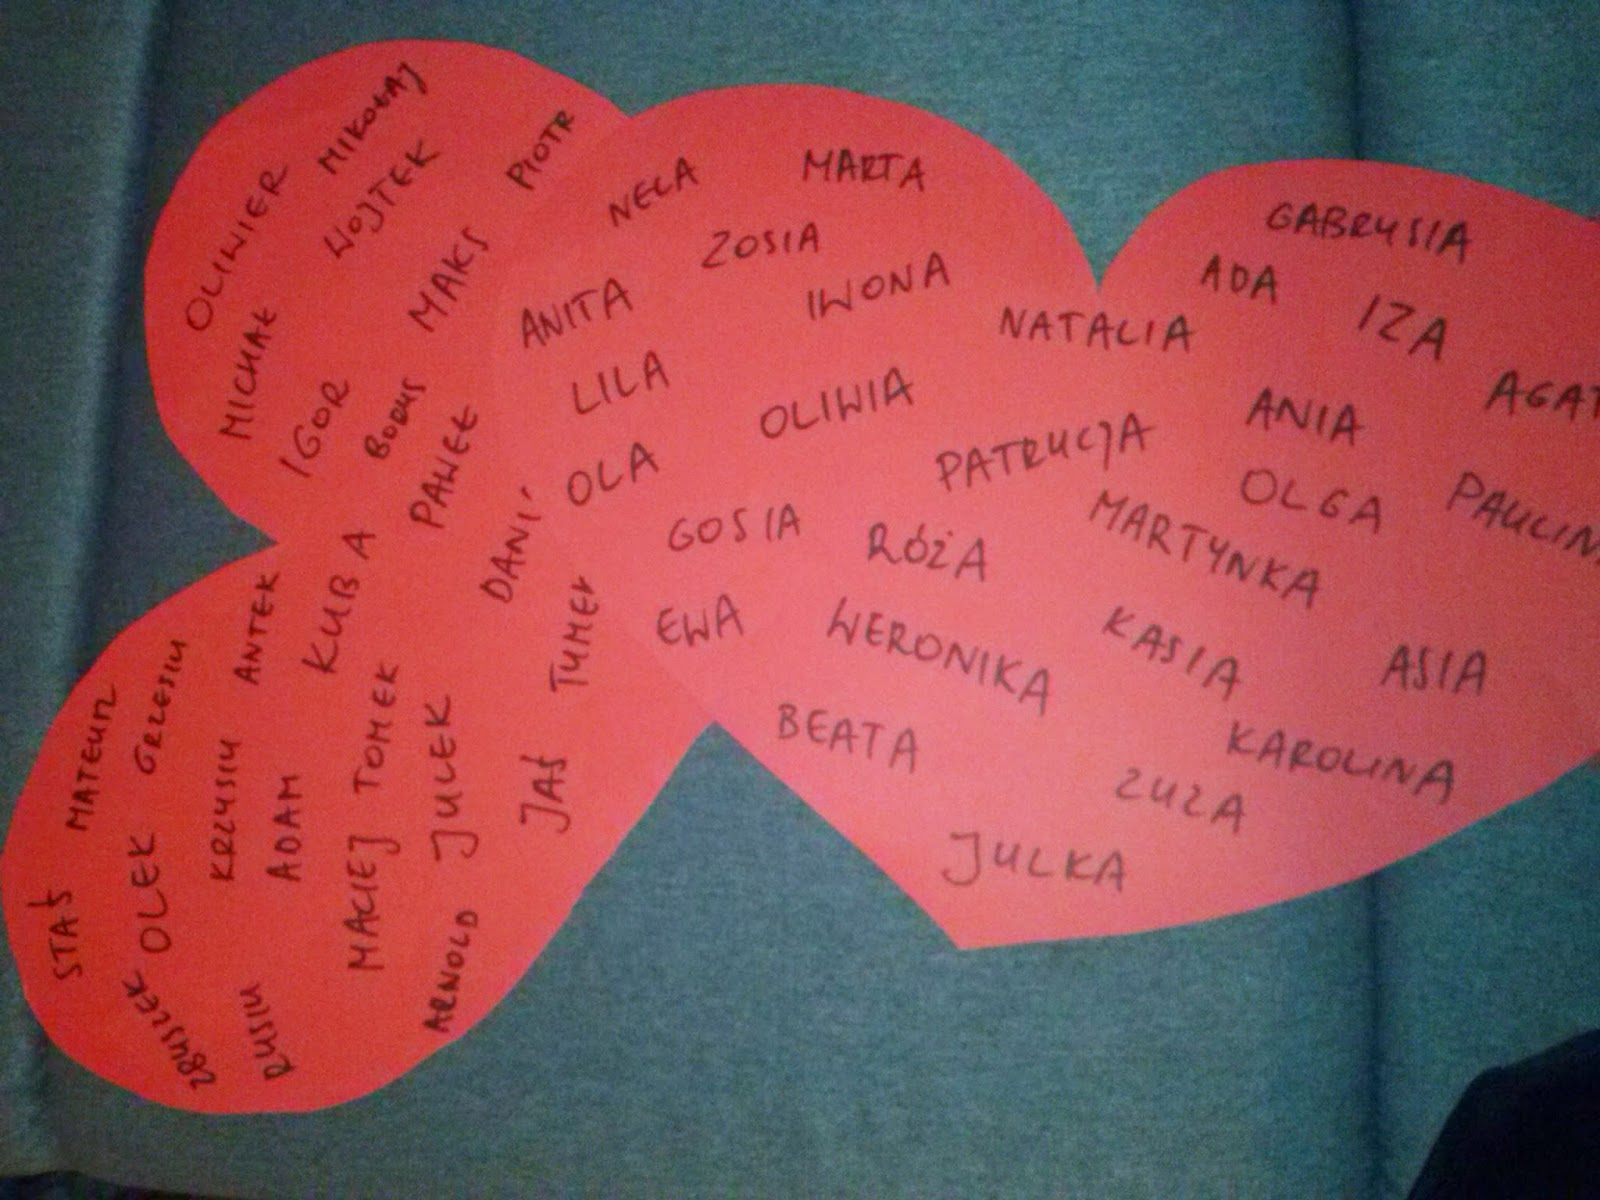 OLIWIER
MIKOŁAJ
WOJTEK
PIOTR
MICHAŁ
MAKS
IGOR
BORYS
PAWEŁ
DANI
KUBA
ANTEK
TYMEK
GRZESIU
MATEUSZ
KRZYSIU
TOMEK
JULEK
JAŚ
ADAM
MACIEJ
OLEK
STAŚ
ARNOLD
ZBYSZEK
RYSIU
NELA
MARTA
ZOSIA
ANITA
IWONA
LILA
OLIWIA
OLA
GOSIA
RÓŻA
EWA
WERONIKA
BEATA
JULKA
GABRYSIA
ADA
IZA
NATALIA
AGAT
ANIA
PATRYCJA
OLGA
PAULIN
MARTYNKA
KASIA
ASIA
KAROLINA
ZUZA